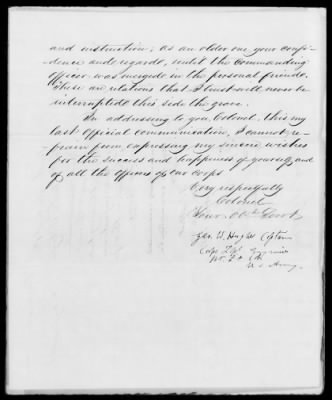 and instruction; as an older one your confi-
dence and regards, until the Commanding
officer was merged in the personal friend.
These are relations that I trust will never be
interrupted this side the grave.
In addressing to you, Colonel, this my
last official communication, I cannot re-
frain from expressing my sincere wishes
for the success and happiness of yourself and
of all the officers of our Corps
Very respectfully
Colonel
Your Obt Servt
Geo. W. Hughes Captain
Corps Topl Engineers
U. S. Army